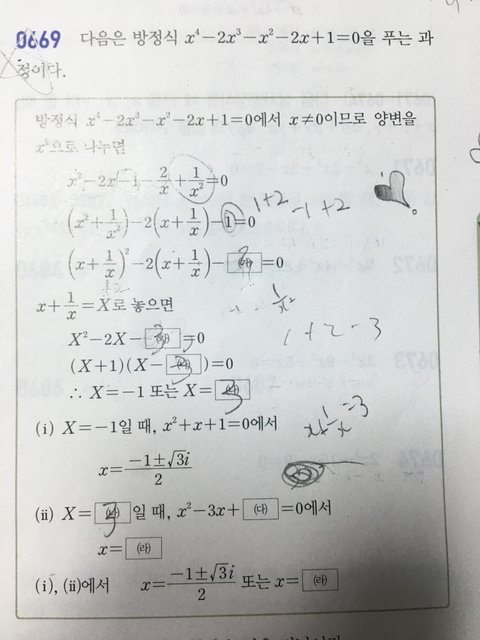 0669 다음은 방정식 x⁴−2x³−x²−2x+1=0을 푸는 과
정이다.
방정식 x⁴−2x³−x²−2x+1=0에서 x≠0이므로 양변을
x²으로 나누면
x²−2x−1−2/x+1/x²=0
(x²+1/x²)−2(x+1/x)−1=0
1+2 −1+2
(x+1/x)²−2(x+1/x)−3=0
x+1/x=X로 놓으면
1/x²
X²−2X−3=0
1+2−3
(X+1)(X−3)=0
∴ X=−1 또는 X=3
(i) X=−1일 때, x²+x+1=0에서
x=(−1±√3i)/2
(ii) X=3일 때, x²−3x+(다)=0에서
x=(라)
(i), (ii)에서 x=(−1±√3i)/2 또는 x=(라)